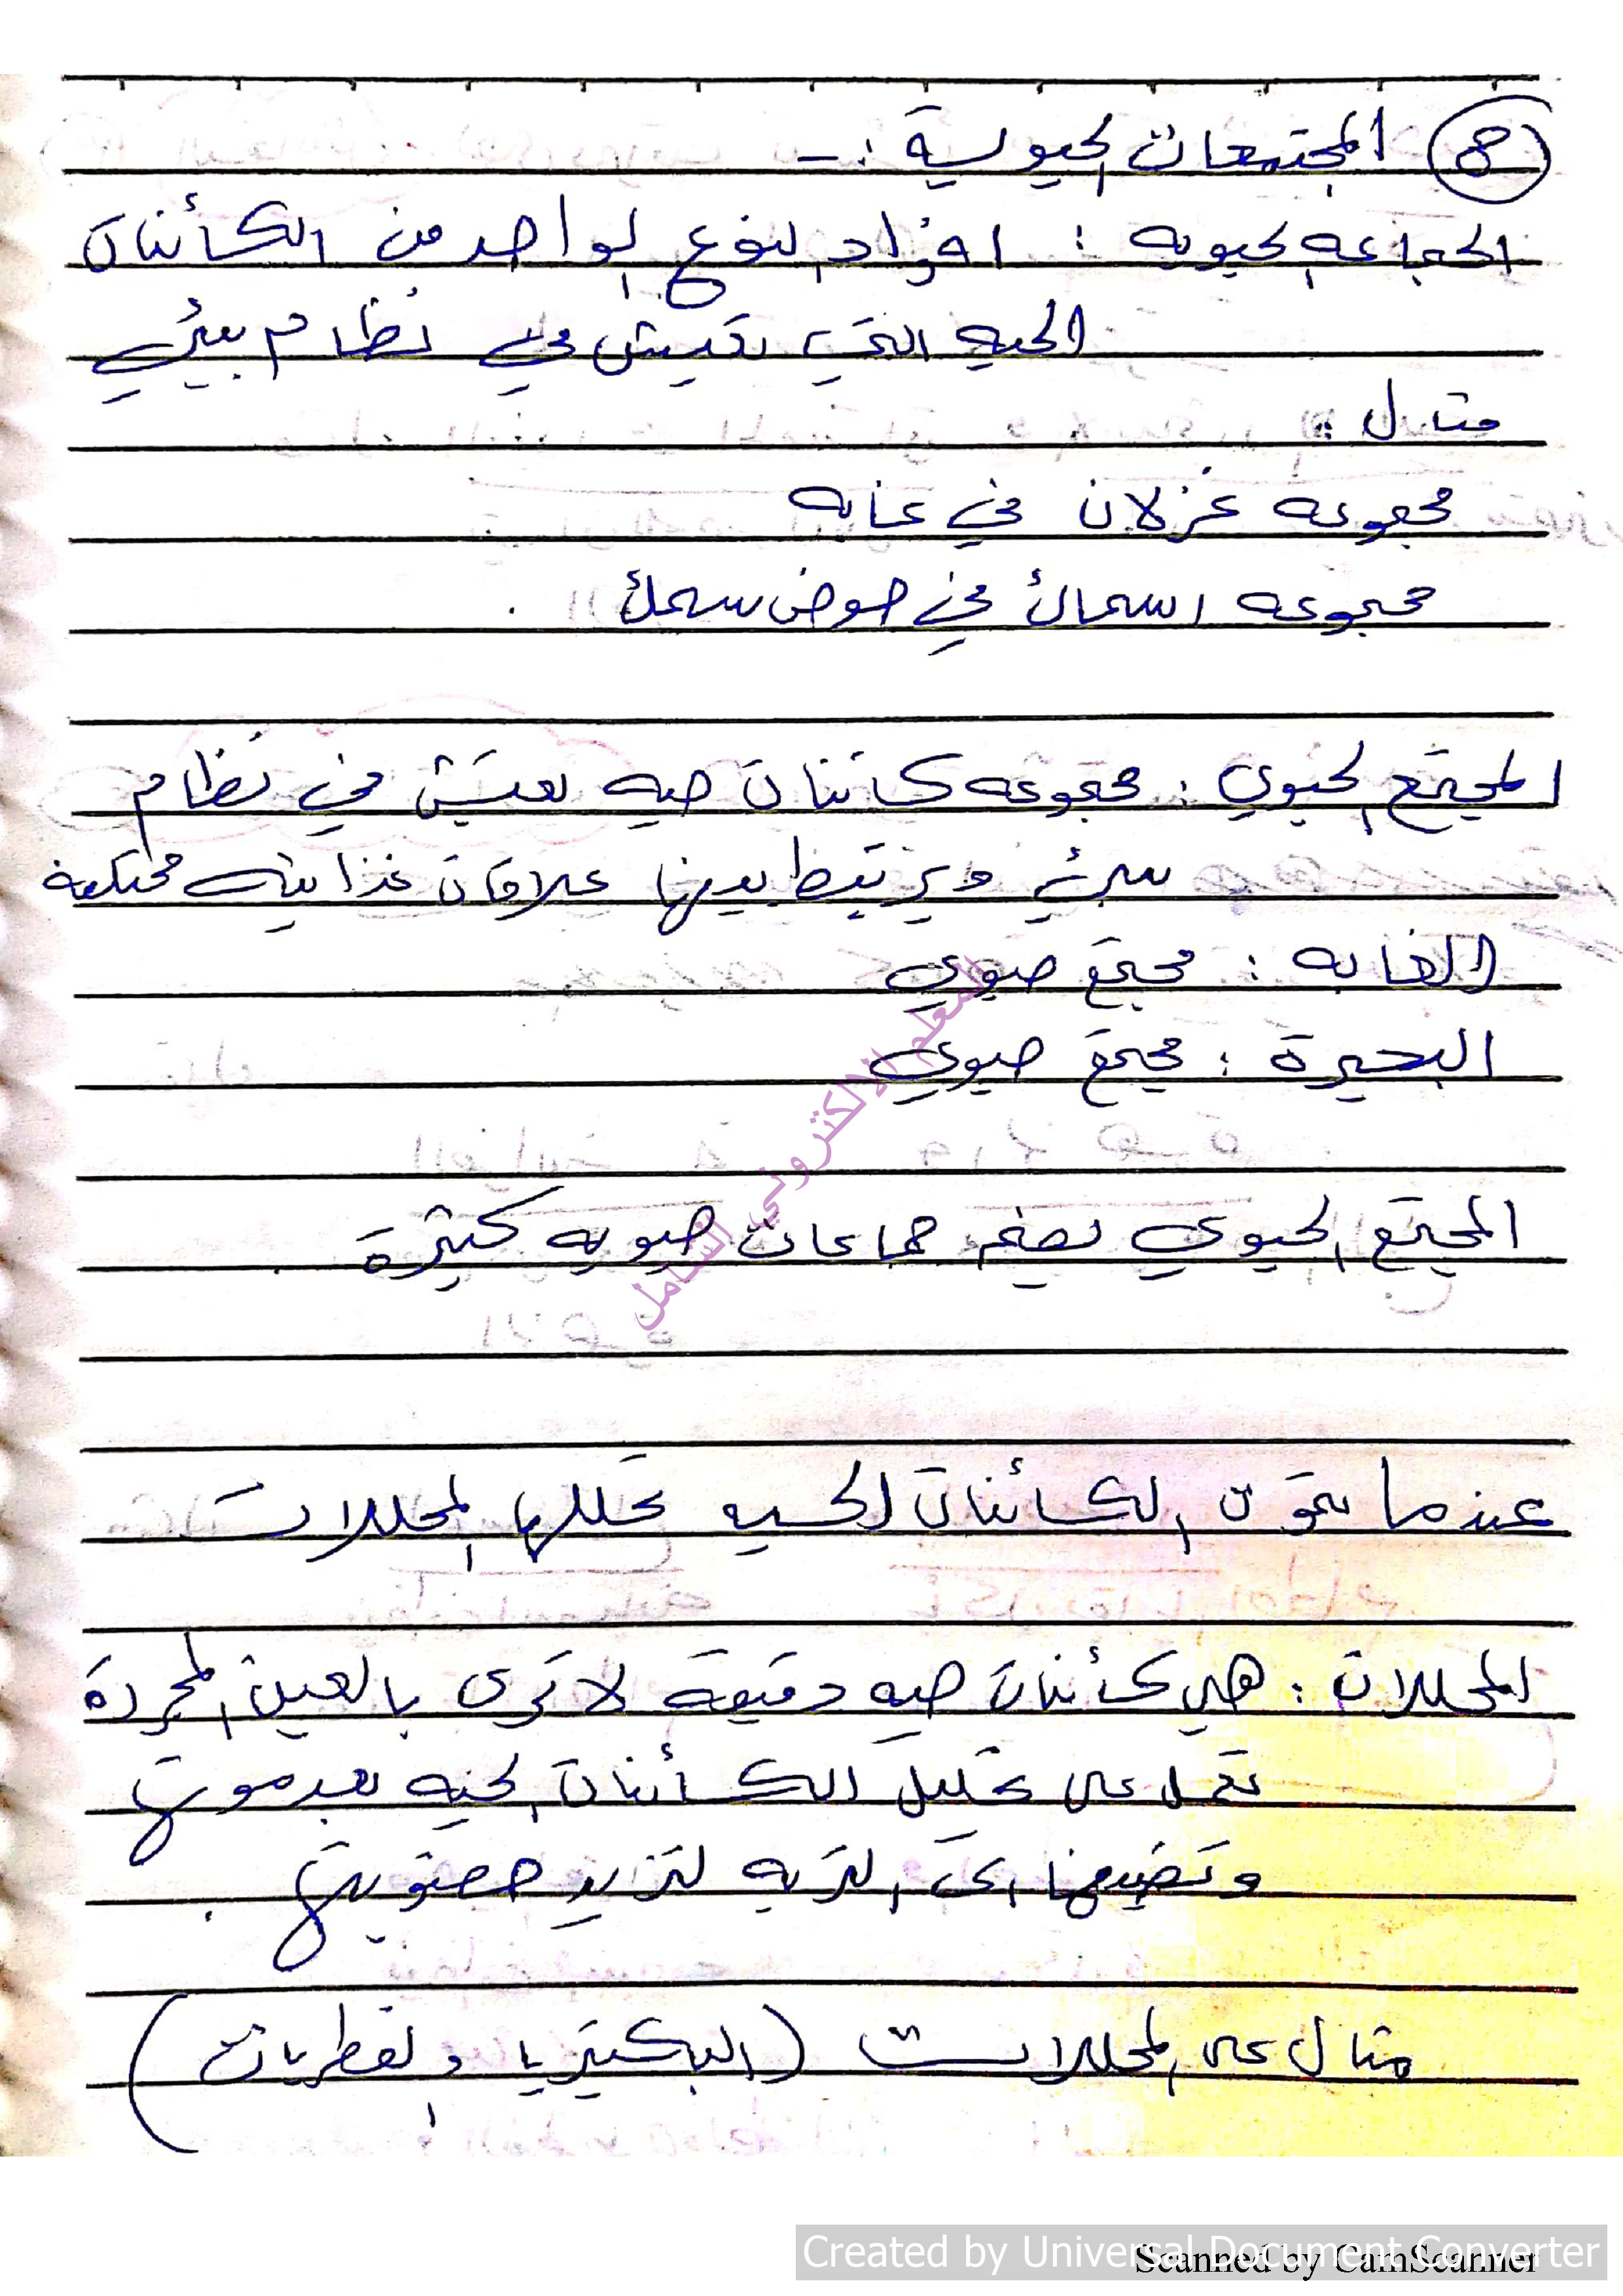 8 المجتمعات الحيوية :-
الجماعه الحيويه : افراد النوع الواحد من الكائنات
الحيه التي تعيش في نظام بيئي
مثال :
مجموعه غزلان في غابه
مجموعه اسماك في حوض سمك .
المجتمع الحيوي : مجموعه كائنات حيه تعيش في نظام
بيئي ويرتبط بينها علاقات غذائيه
الغابه : مجتمع حيوي
البحيرة : مجتمع حيوي
المجتمع الحيوي يضم جماعات حيويه كثيرة .
عندما تموت الكائنات الحيه تحللها المحللات
المحللات : هي كائنات حيه دقيقة لا ترى بالعين المجردة
تعمل على تحليل الكائنات الحيه بعد موتها
وتضيفها الى التربه لتزيد خصوبتها .
مثال على المحللات ( البكتيريا والفطريات )
المعلم الالكتروني الشامل
Created by Universal Document Converter
Scanned by CamScanner